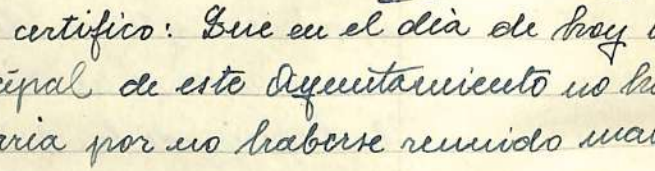 certifico: Que en el día de hoy
cipal de este Ayuntamiento no ha
aria por no haberse reunido